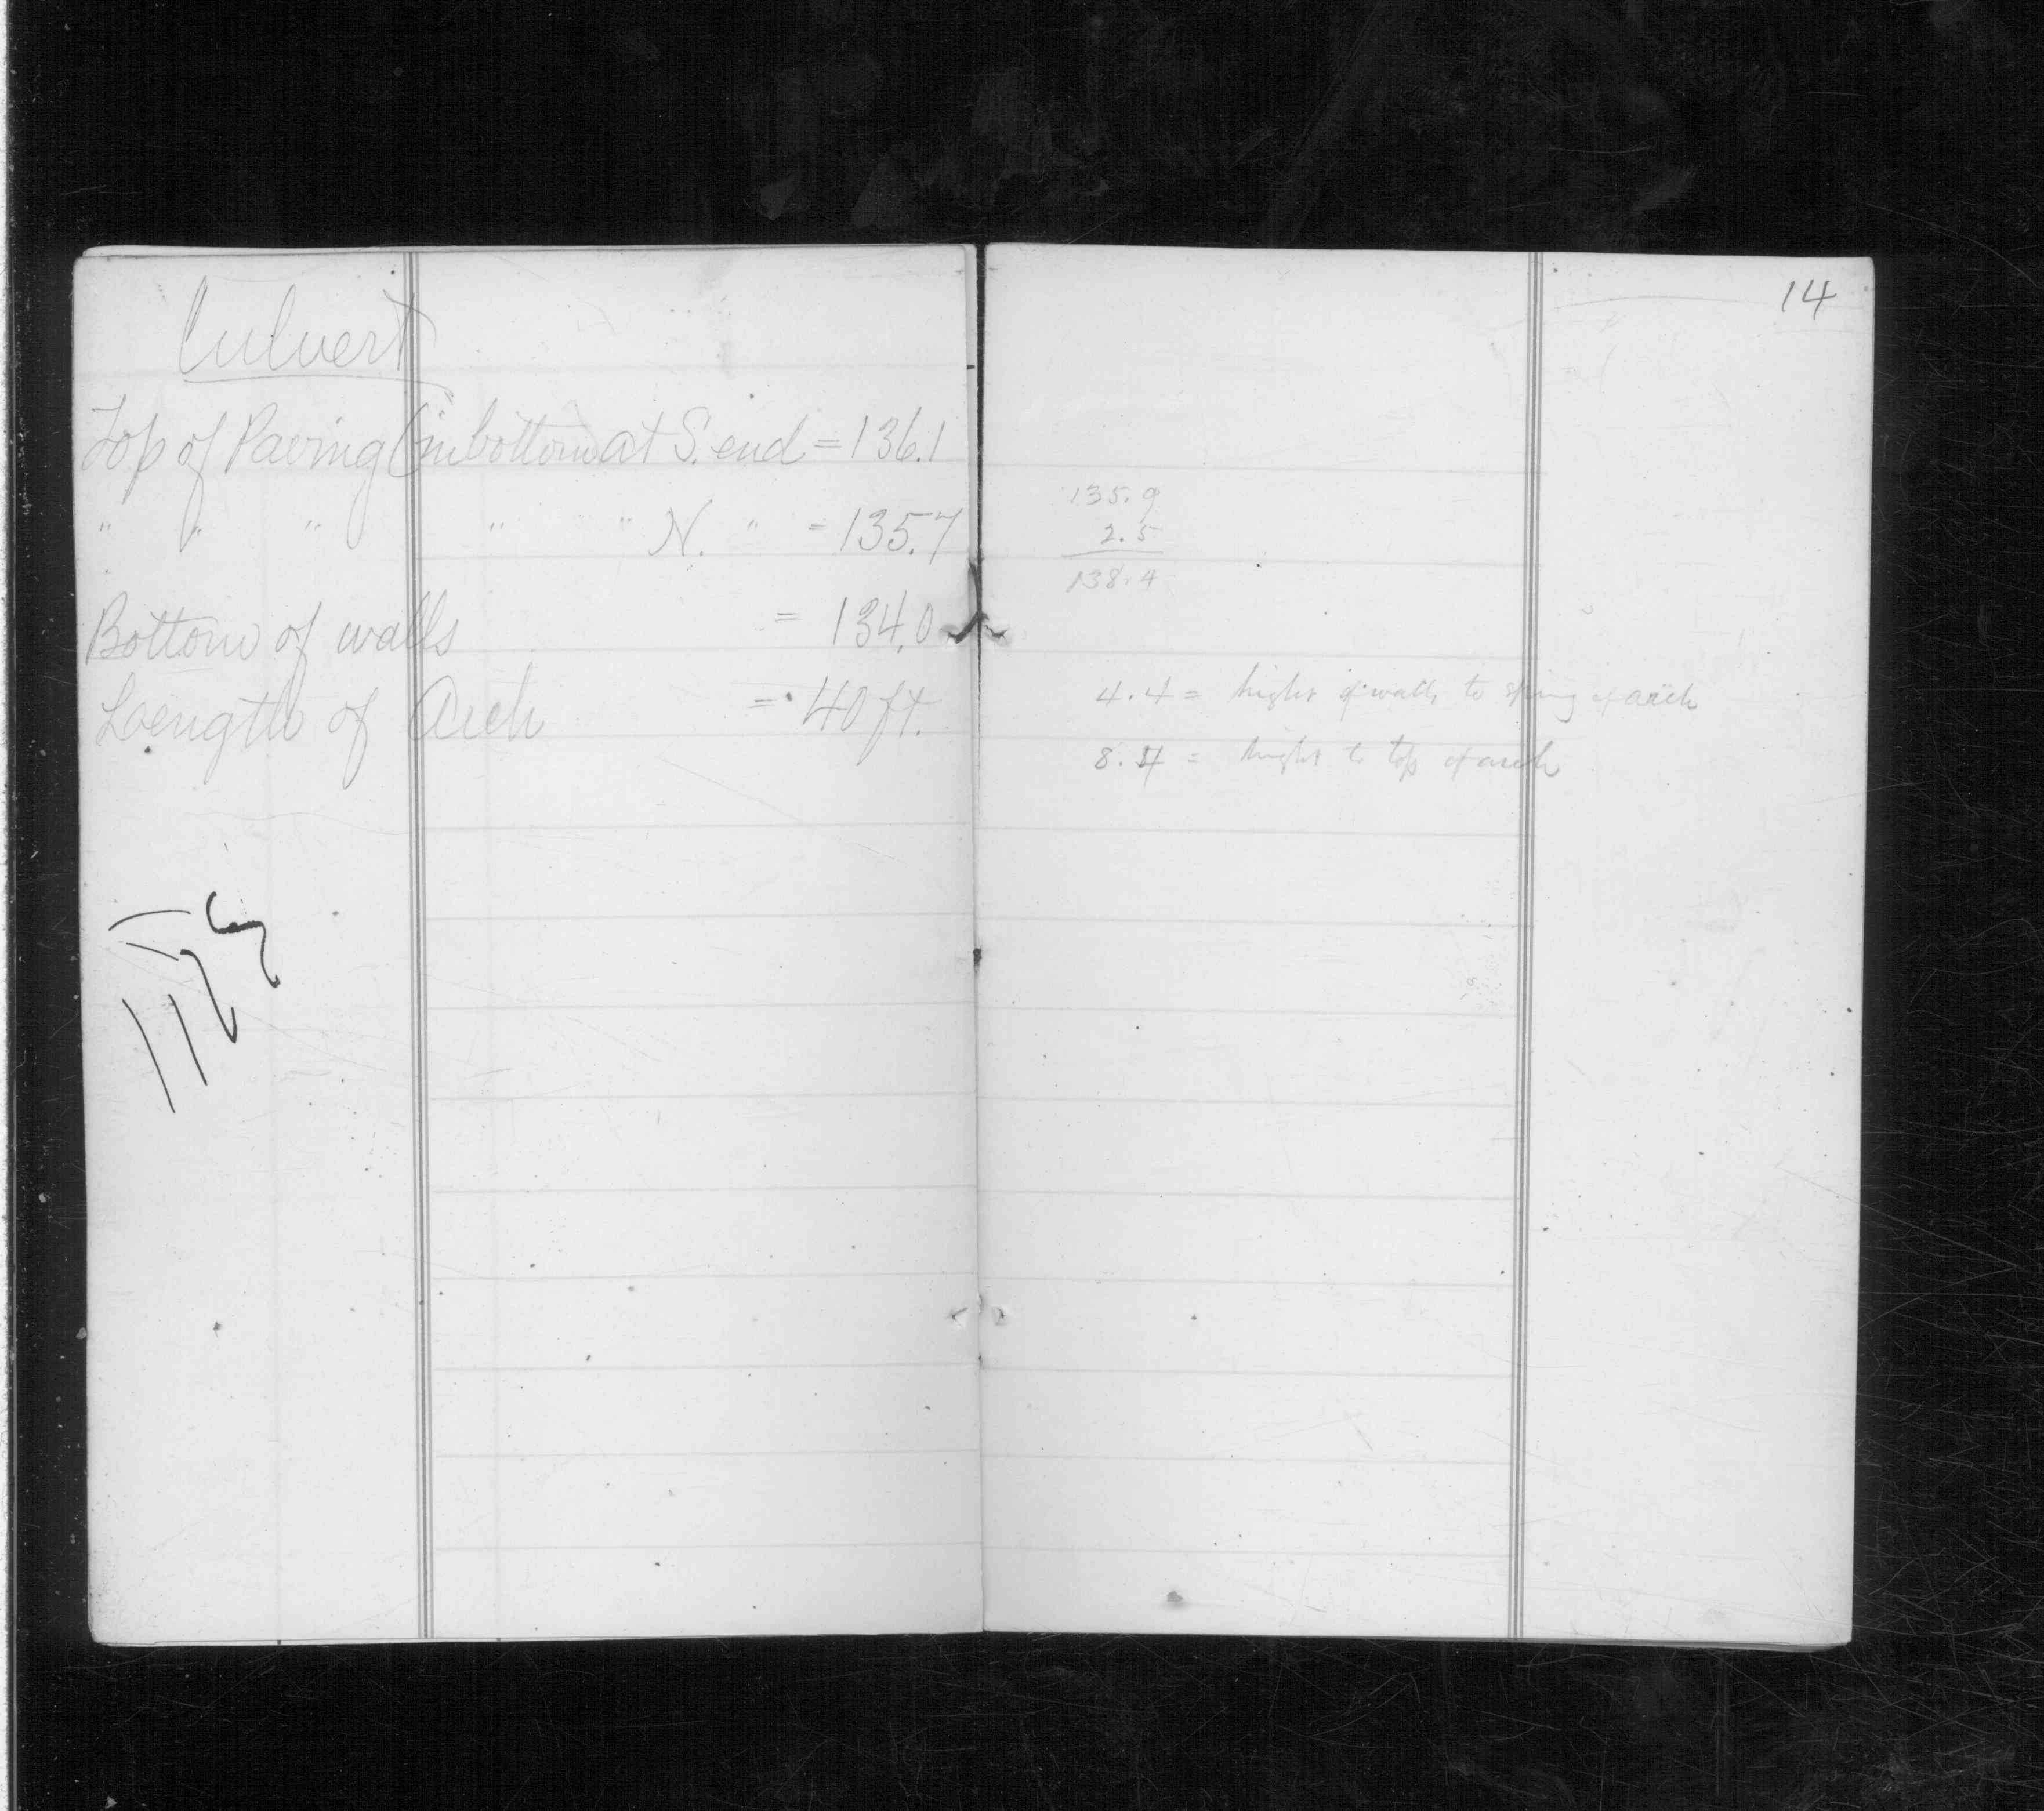 Culvert
Top of Paving (in bottom at S. end = 136.1
" " " " " N. " = 135.7
Bottom of walls = 134.0
Length of Arch = 40 ft.
14
135.9
2.5
138.4
4.4 = hight of walls to spring of arch
8.4 = hight to top of arch